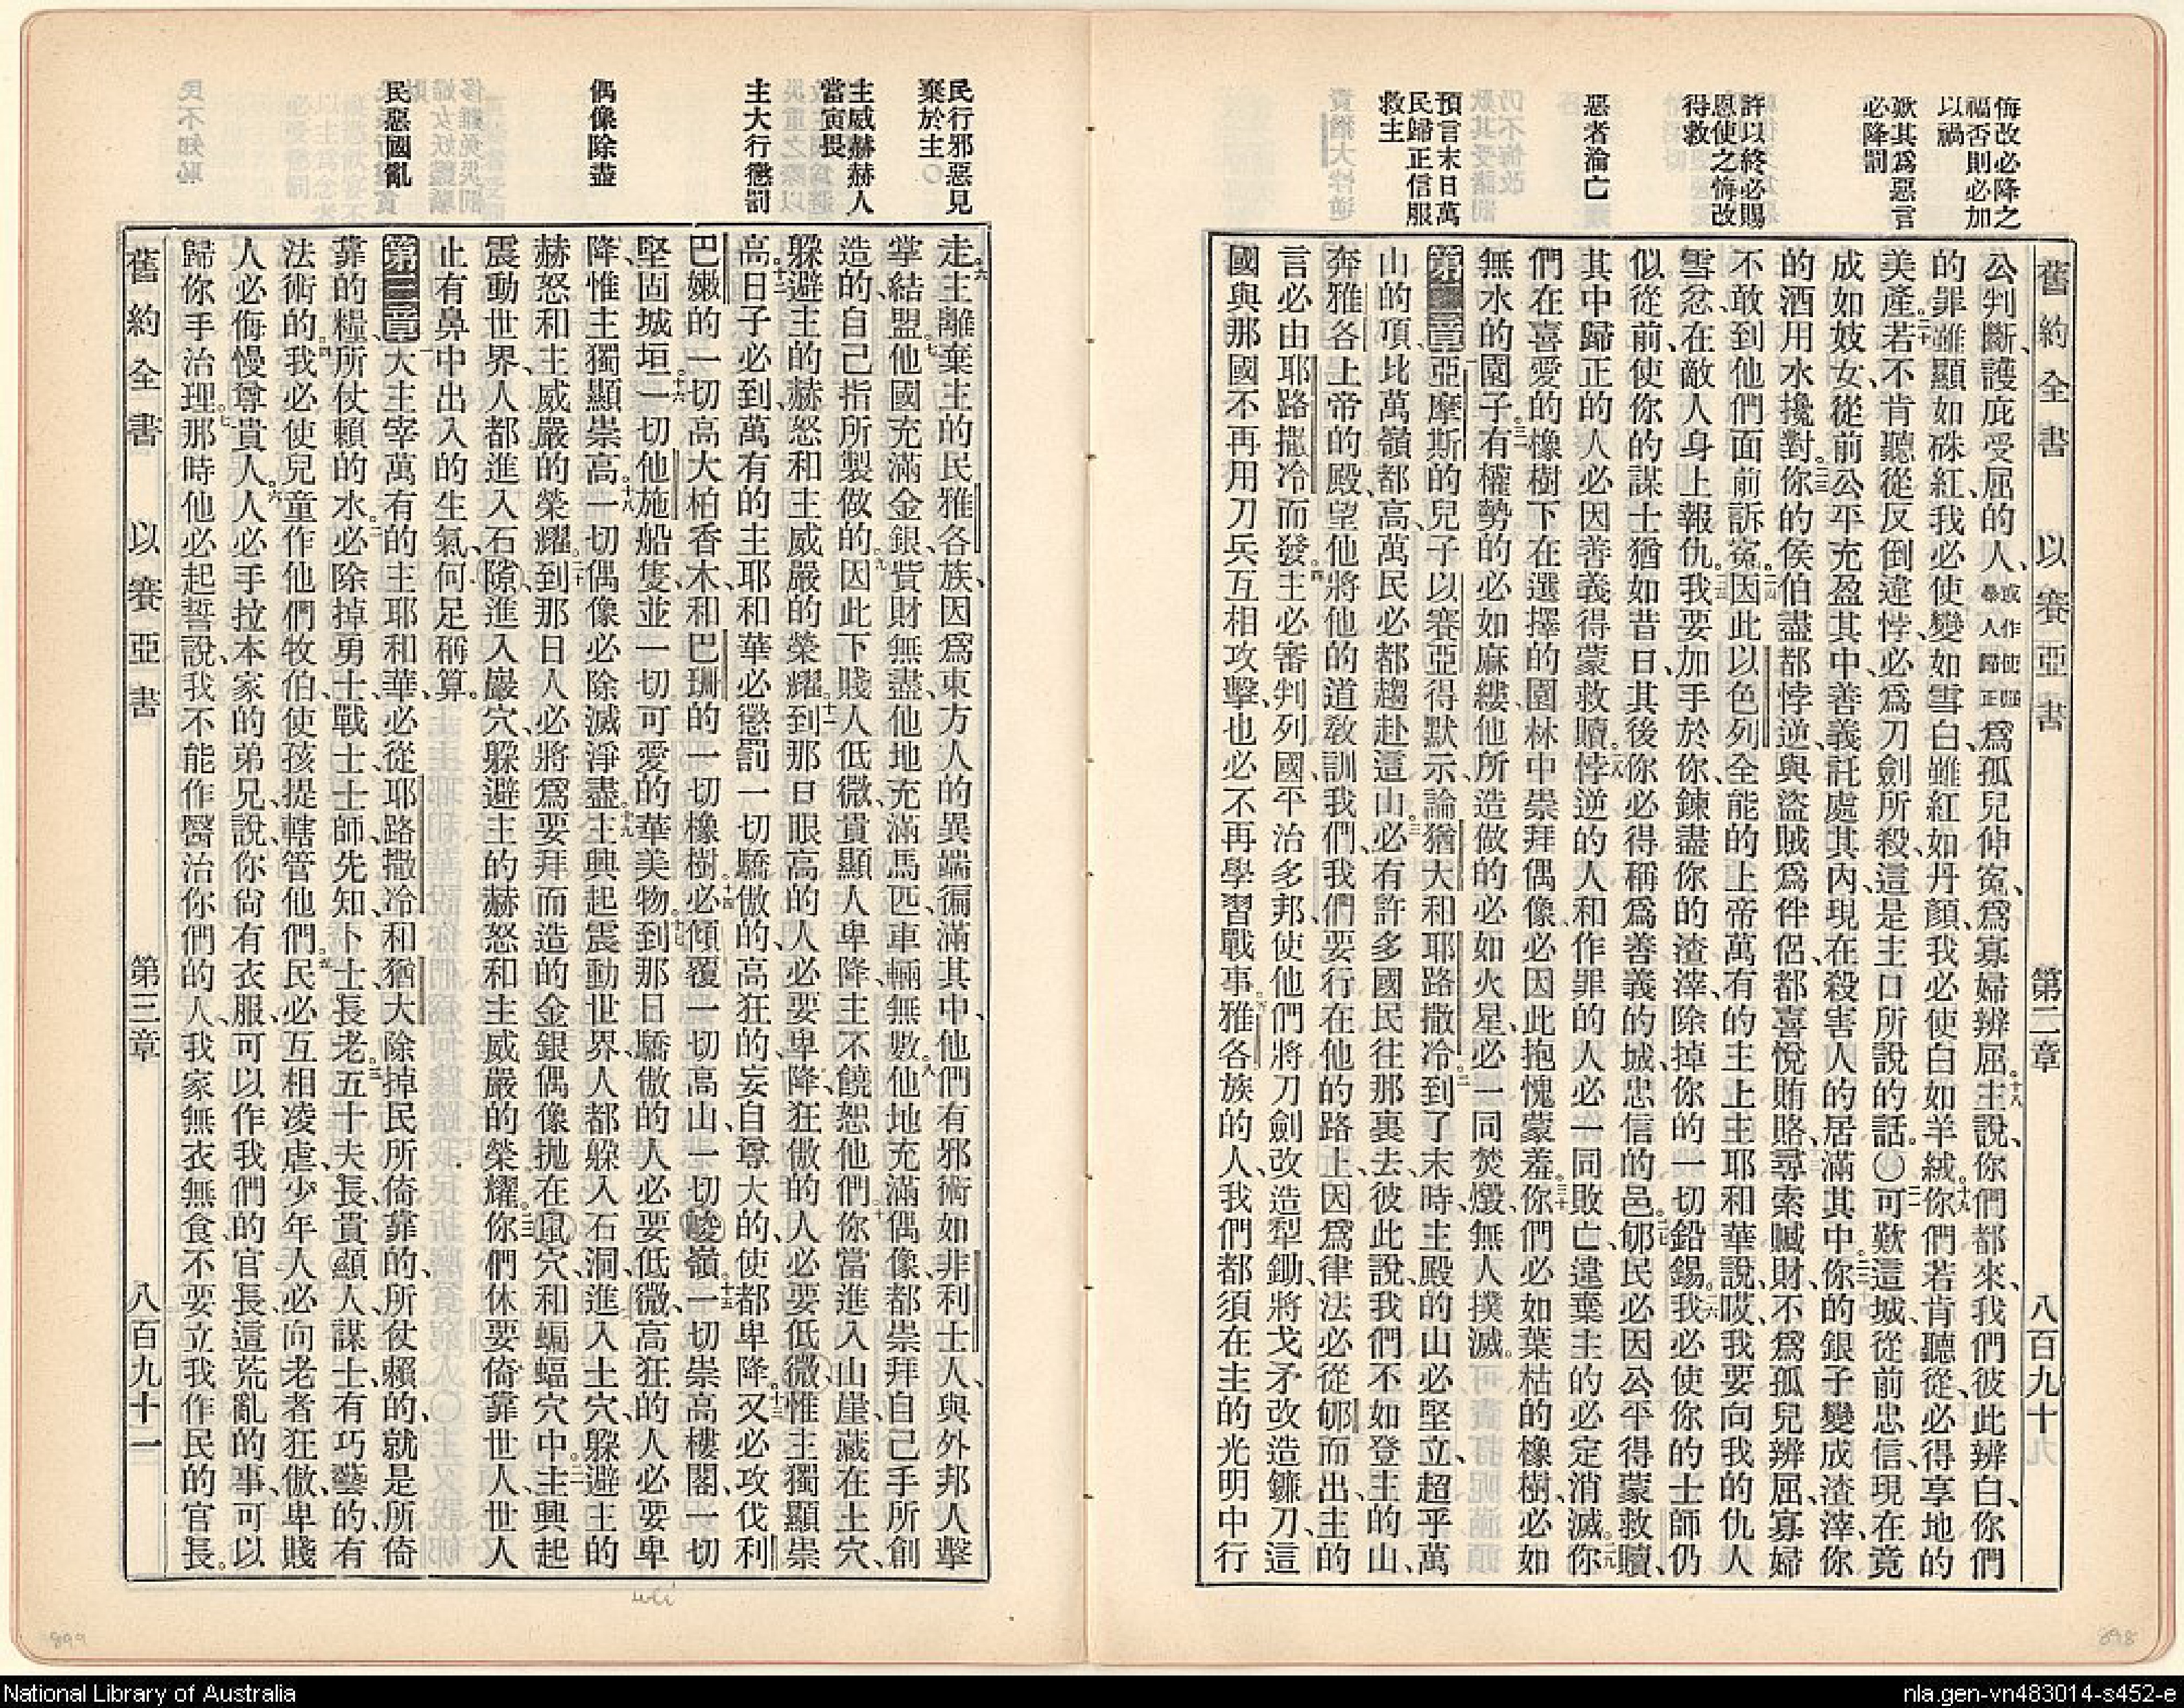 舊約全書 以賽亞書 第二章 八百九十
悔改必降之
福否則必加
以禍
歎其爲惡言
必降罰
許以終必賜
恩使之悔改
得救
惡者淪亡
預言末日萬
民歸正信服
救主
公判斷、護庇受屈的人、或作使強暴人歸正爲孤兒伸冤、爲寡婦辨屈。十八主說、你們都來、我們彼此辨白、你們
的罪雖顯如硃紅、我必使變如雪白、雖紅如丹顏、我必使白如羊絨。十九你們若肯聽從、必得享地的
美產。二十若不肯聽從反倒違悖、必爲刀劍所殺、這是主口所說的話。〇二一可歎這城、從前忠信、現在竟
成如妓女、從前公平充盈其中、善義託處其內、現在殺害人的居滿其中。二二你的銀子變成渣滓、你
的酒用水攙對。二三你的侯伯盡都悖逆、與盜賊爲伴侶、都喜悅賄賂、尋索贓財、不爲孤兒辨屈、寡婦
不敢到他們面前訴冤。二四因此以色列全能的上帝萬有的主上主耶和華說、哎、我要向我的仇人
雪忿、在敵人身上報仇。二五我要加手於你、鍊盡你的渣滓、除掉你的一切鉛錫。二六我必使你的士師仍
似從前、使你的謀士猶如昔日、其後你必得稱爲善義的城、忠信的邑。二七郇民必因公平得蒙救贖、
其中歸正的人必因善義得蒙救贖。二八悖逆的人和作罪的人必一同敗亡、違棄主的必定消滅。二九你
們在喜愛的橡樹下、在選擇的園林中崇拜偶像、必因此抱愧蒙羞。三十你們必如葉枯的橡樹、必如
無水的園子。三一有權勢的必如麻縷、他所造做的必如火星、必一同焚燬、無人撲滅。
第二章一亞摩斯的兒子以賽亞得默示、論猶大和耶路撒冷。二到了末時、主殿的山必堅立、超乎萬
山的項、比萬嶺都高、萬民必都趨赴這山。三必有許多國民往那裏去、彼此說、我們不如登主的山、
奔雅各上帝的殿、望他將他的道敎訓我們、我們要行在他的路上、因爲律法必從郇而出、主的
言必由耶路撒冷而發。四主必審判列國、平治多邦、使他們將刀劍改造犁鋤、將戈矛改造鐮刀、這
國與那國不再用刀兵互相攻擊、也必不再學習戰事。五雅各族的人、我們都須在主的光明中行
民行邪惡見
棄於主
主威赫赫人
當寅畏
主大行懲罰
偶像除盡
民惡國亂
走。六主離棄主的民雅各族、因爲東方人的異端徧滿其中、他們有邪術如非利士人、與外邦人擊
掌結盟。七他國充滿金銀、貲財無盡、他地充滿馬匹、車輛無數。八他地充滿偶像、都崇拜自己手所創
造的、自己指所製做的。九因此下賤人低微、貴顯人卑降、主不饒恕他們。十你當進入山崖、藏在土穴、
躲避主的赫怒和主威嚴的榮耀。十一到那日眼高的人必要卑降、狂傲的人必要低微、惟主獨顯崇
高。十二日子必到、萬有的主耶和華必懲罰一切驕傲的、高狂的、妄自尊大的、使都卑降。十三又必攻伐利
巴嫩的一切高大柏香木、和巴珊的一切橡樹。十四必傾覆一切高山、一切峻嶺。十五一切崇高樓閣、一切
堅固城垣。十六一切他施船隻、並一切可愛的華美物。十七到那日驕傲的人必要低微、高狂的人必要卑
降、惟主獨顯崇高。十八一切偶像必除滅淨盡。十九主興起震動世界、人都躲入石洞、進入土穴、躲避主的
赫怒和主威嚴的榮耀。二十到那日人必將爲要拜而造的金銀偶像抛在鼠穴和蝙蝠穴中。二一主興起
震動世界、人都進入石隙、進入巖穴、躲避主的赫怒和主威嚴的榮耀。二二你們休要倚靠世人、世人
止有鼻中出入的生氣、何足稱算。
第三章一大主宰萬有的主耶和華、必從耶路撒冷和猶大除掉民所倚靠的、所仗賴的、就是所倚
靠的糧、所仗賴的水。二必除掉勇士、戰士、士師、先知、卜士、長老。三五十夫長、貴顯人、謀士、有巧藝的、有
法術的。四我必使兒童作他們牧伯、使孩提轄管他們。五民必互相凌虐、少年人必向老者狂傲、卑賤
人必侮慢尊貴人。六人必手拉本家的弟兄、說、你尚有衣服、可以作我們的官長、這荒亂的事、可以
歸你手治理。七那時他必起誓說、我不能作醫治你們的人、我家無衣無食、不要立我作民的官長。
舊約全書 以賽亞書 第三章 八百九十一
899
898
National Library of Australia
nla.gen-vn483014-s452-e